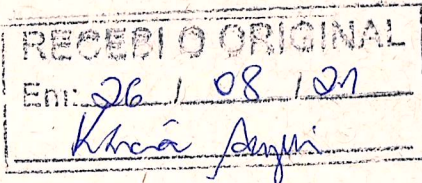 RECEBI O ORIGINAL
Em: 26 / 08 / 21